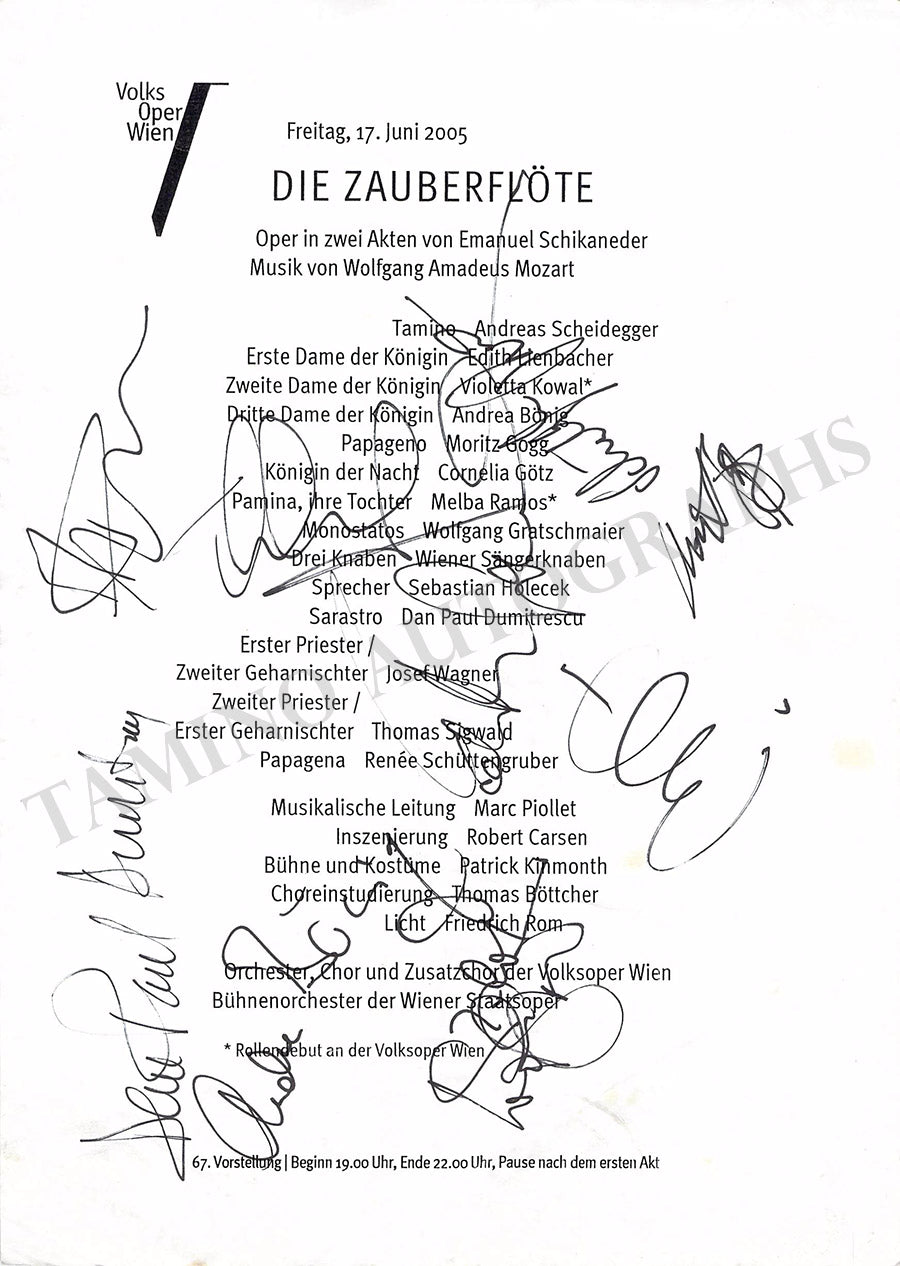 Volks
Oper
Wien
Freitag, 17. Juni 2005
DIE ZAUBERFLÖTE
Oper in zwei Akten von Emanuel Schikaneder
Musik von Wolfgang Amadeus Mozart
Tamino Andreas Scheidegger
Erste Dame der Königin Edith Lienbacher
Zweite Dame der Königin Violetta Kowal*
Dritte Dame der Königin Andrea Bönig
Papageno Moritz Gogg
Königin der Nacht Cornelia Götz
Pamina, ihre Tochter Melba Ramos*
Monostatos Wolfgang Gratschmaier
Drei Knaben Wiener Sängerknaben
Sprecher Sebastian Holecek
Sarastro Dan Paul Dumitrescu
Erster Priester /
Zweiter Geharnischter Josef Wagner
Zweiter Priester /
Erster Geharnischter Thomas Sigwald
Papagena Renée Schüttengruber
Musikalische Leitung Marc Piollet
Inszenierung Robert Carsen
Bühne und Kostüme Patrick Kinmonth
Choreinstudierung Thomas Böttcher
Licht Friedrich Rom
Orchester, Chor und Zusatzchor der Volksoper Wien
Bühnenorchester der Wiener Staatsoper
* Rollendebut an der Volksoper Wien
67. Vorstellung | Beginn 19.00 Uhr, Ende 22.00 Uhr, Pause nach dem ersten Akt
TAMINO AUTOGRAPHS